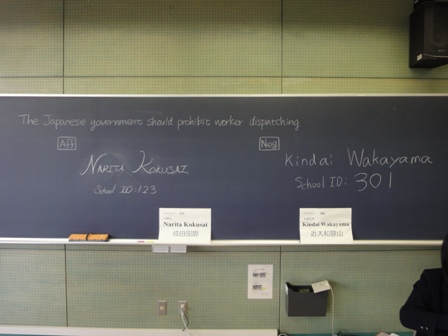 The Japanese government should prohibit worker dispatching
Aff
Neg
NARITA KOKUSAI
School ID: 123
Kindai Wakayama
School ID: 301
Narita Kokusai
成田国際
Kindai Wakayama
近大和歌山